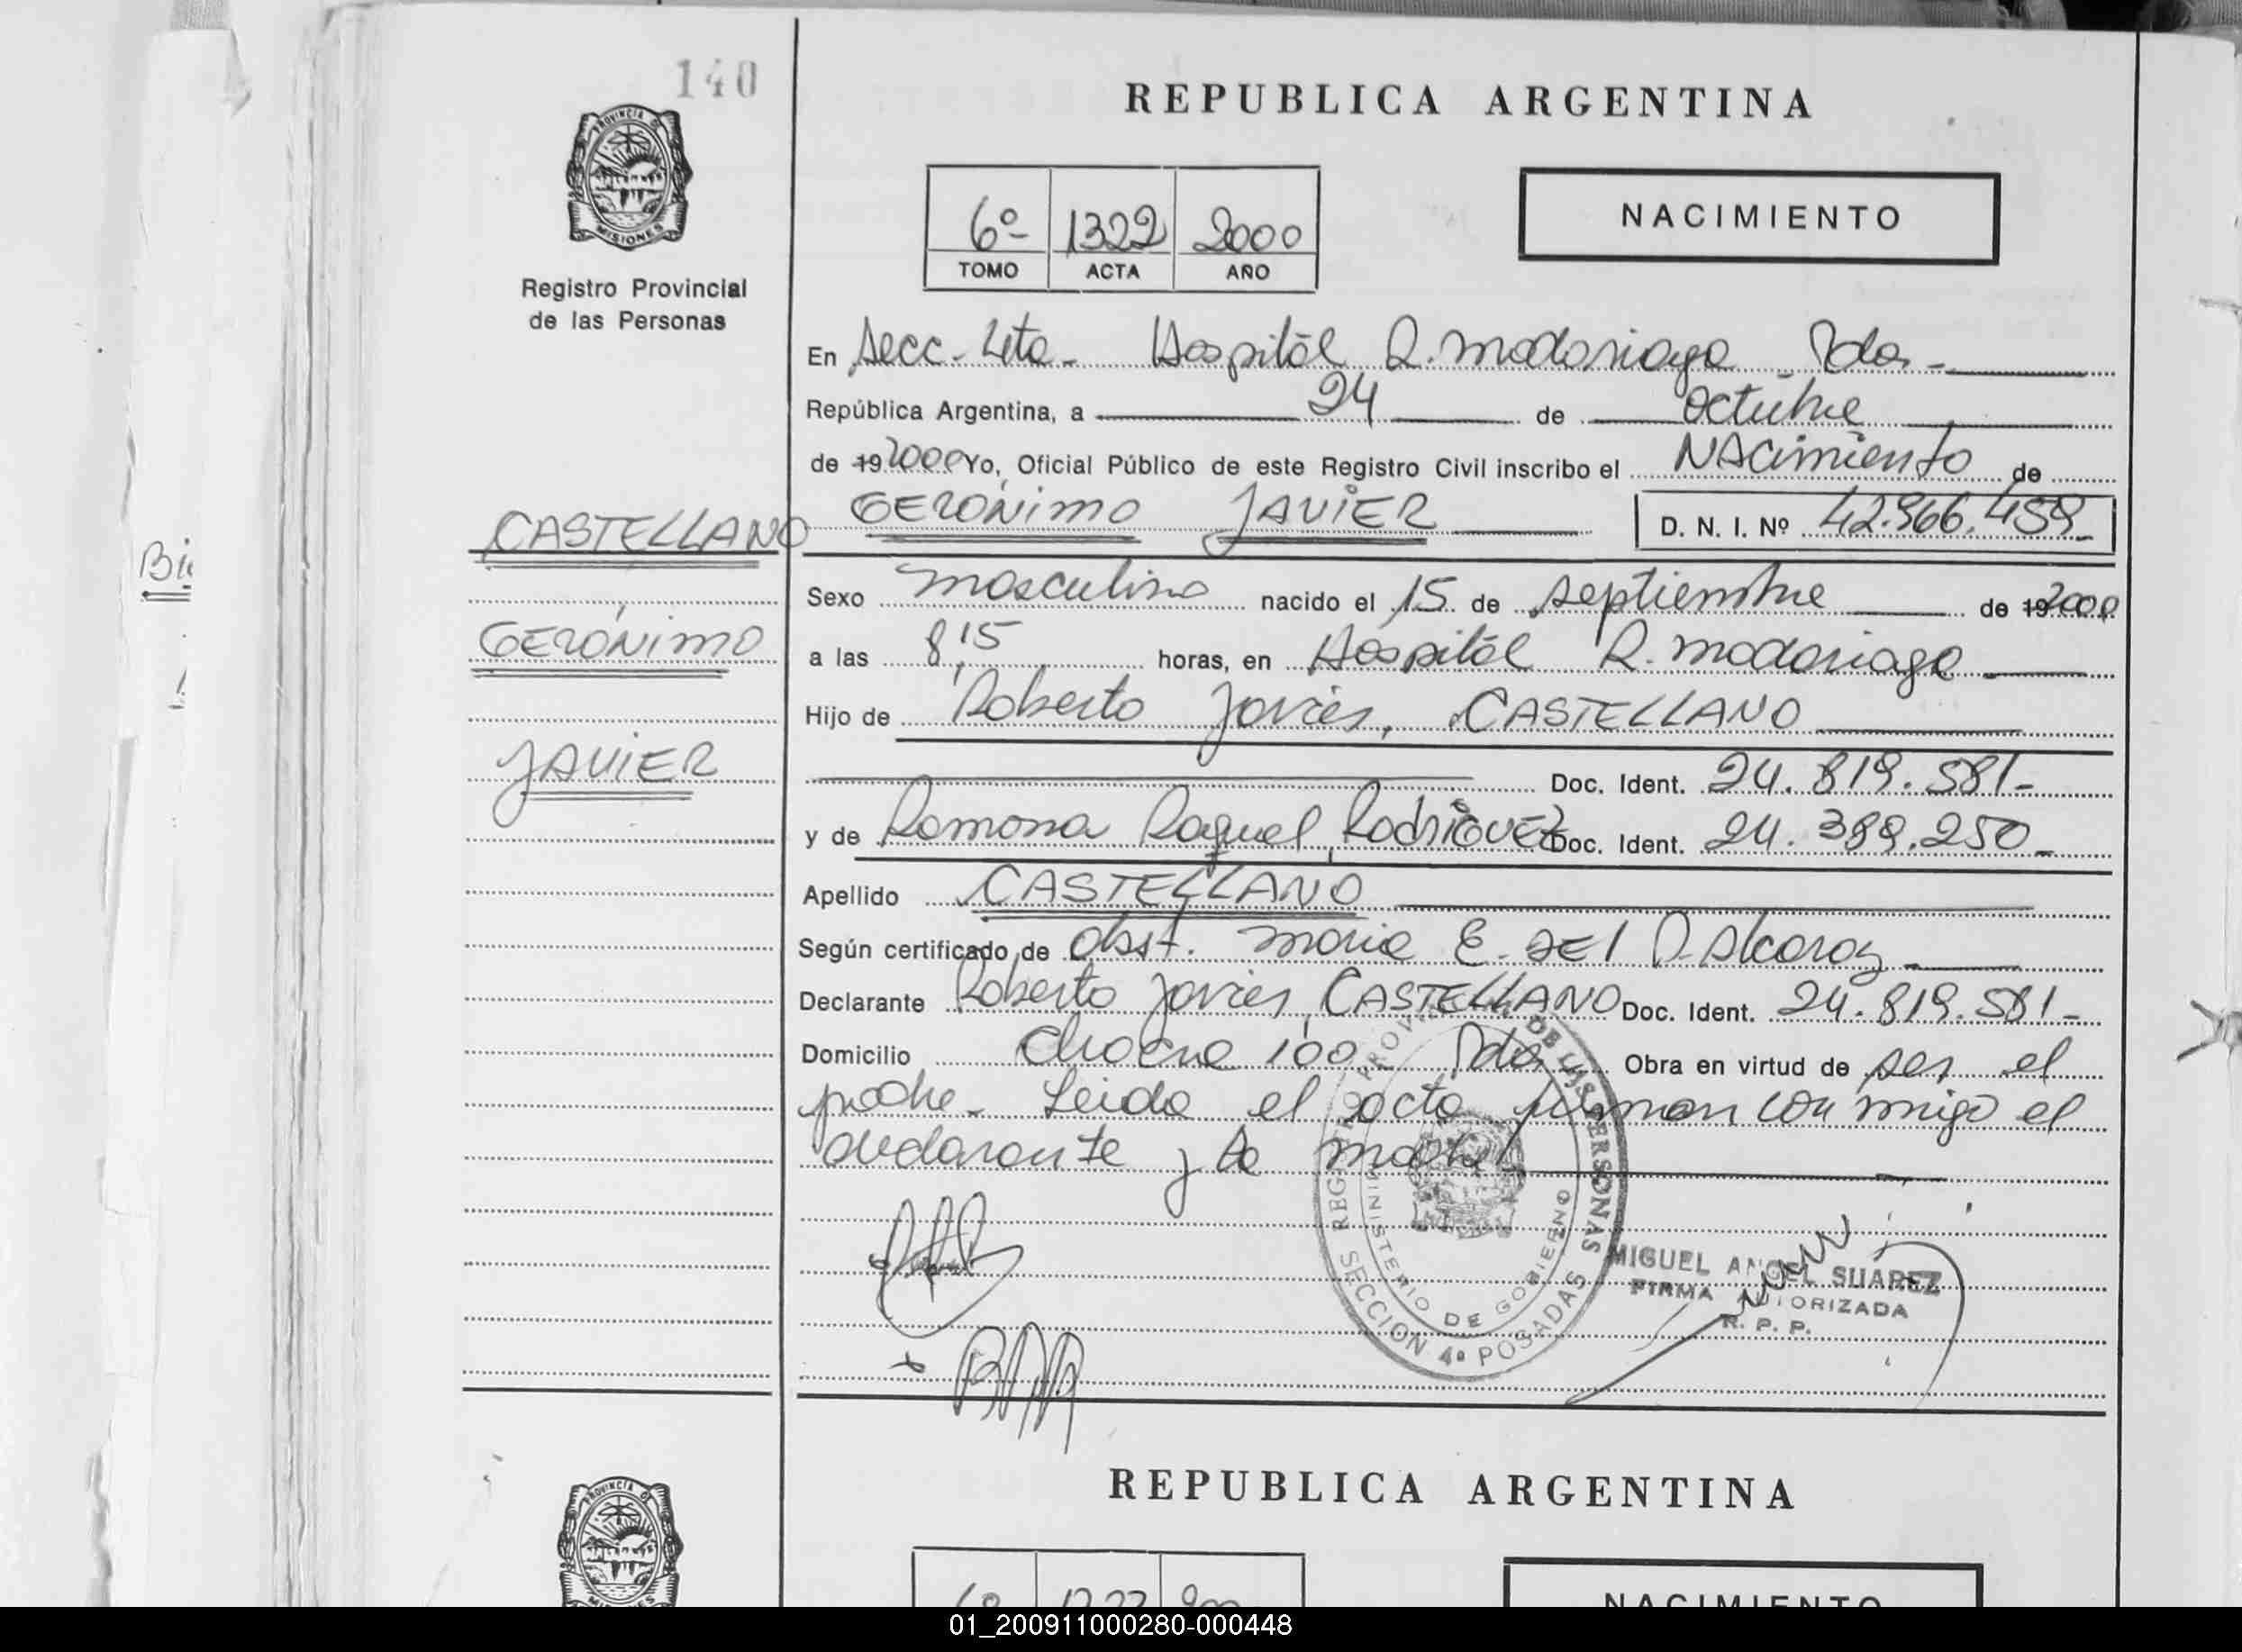 140
PROVINCIA DE
MISIONES
Registro Provincial
de las Personas
REPUBLICA ARGENTINA
6º 1322 2000
TOMO ACTA AÑO
NACIMIENTO
En Secc. 4ta. Hospital R. Madariaga Pdas.
República Argentina, a 24 de octubre
de 19 2000 Yo, Oficial Público de este Registro Civil inscribo el NAcimiento de
CASTELLANO GERÓNIMO JAVIER D. N. I. Nº 42.966.459
Sexo masculino nacido el 15 de septiembre de 19 2000
GERÓNIMO
a las 8,15 horas, en Hospital R. Madariaga
Hijo de Roberto Javier, CASTELLANO
JAVIER
Doc. Ident. 24.819.581-
y de Ramona Raquel, RodriGUEZ Doc. Ident. 24.389.250-
Apellido CASTELLANO
Según certificado de Obst. Maria E. DEl Alcaraz
Declarante Roberto Javier, CASTELLANO Doc. Ident. 24.819.581-
Domicilio 100 Pdas. Obra en virtud de ser el
padre. Leida el acta firman conmigo el
declarante y la madre
REGISTRO PROVINCIAL DE LAS PERSONAS
MINISTERIO DE GOBIERNO
SECCION 4ª POSADAS
MIGUEL ANGEL SUAREZ
FIRMA AUTORIZADA
R. P. P.
REPUBLICA ARGENTINA
PROVINCIA DE
NACIMIENTO
01_200911000280-000448